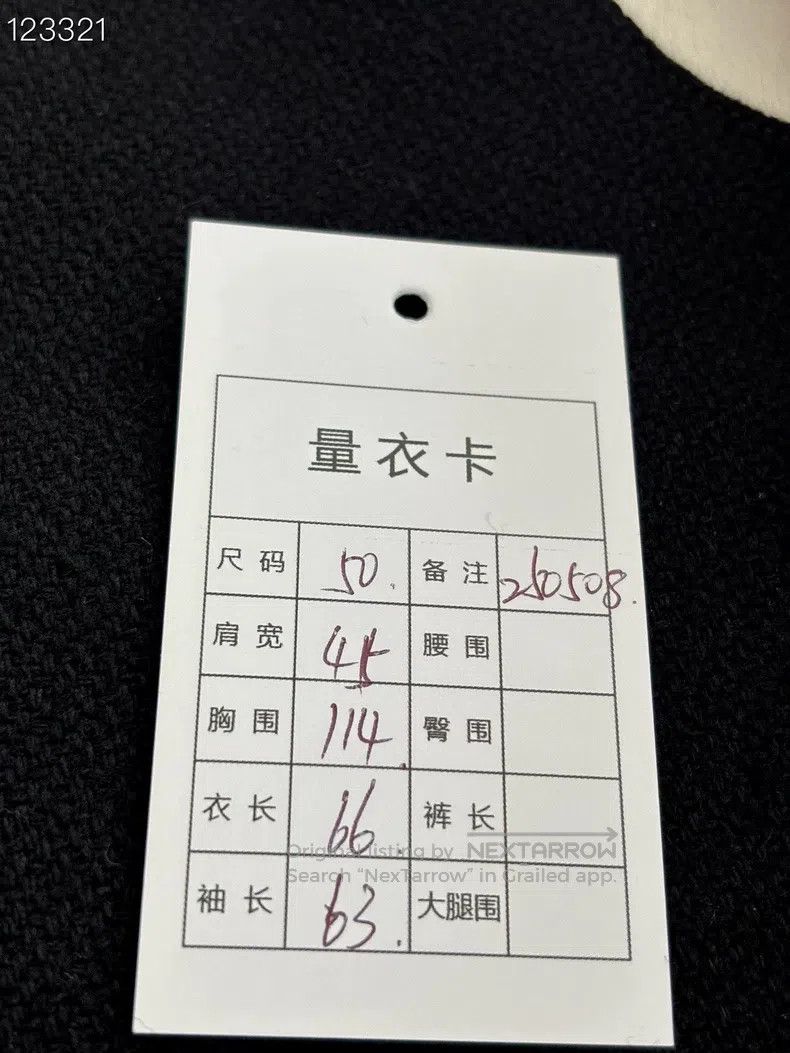 123321
量衣卡
尺码 50. 备注 250508.
肩宽 45 腰围
胸围 114. 臀围
衣长 66 裤长
Original listing by NEXTARROW
Search “NexTarrow” in Grailed app.
袖长 63. 大腿围